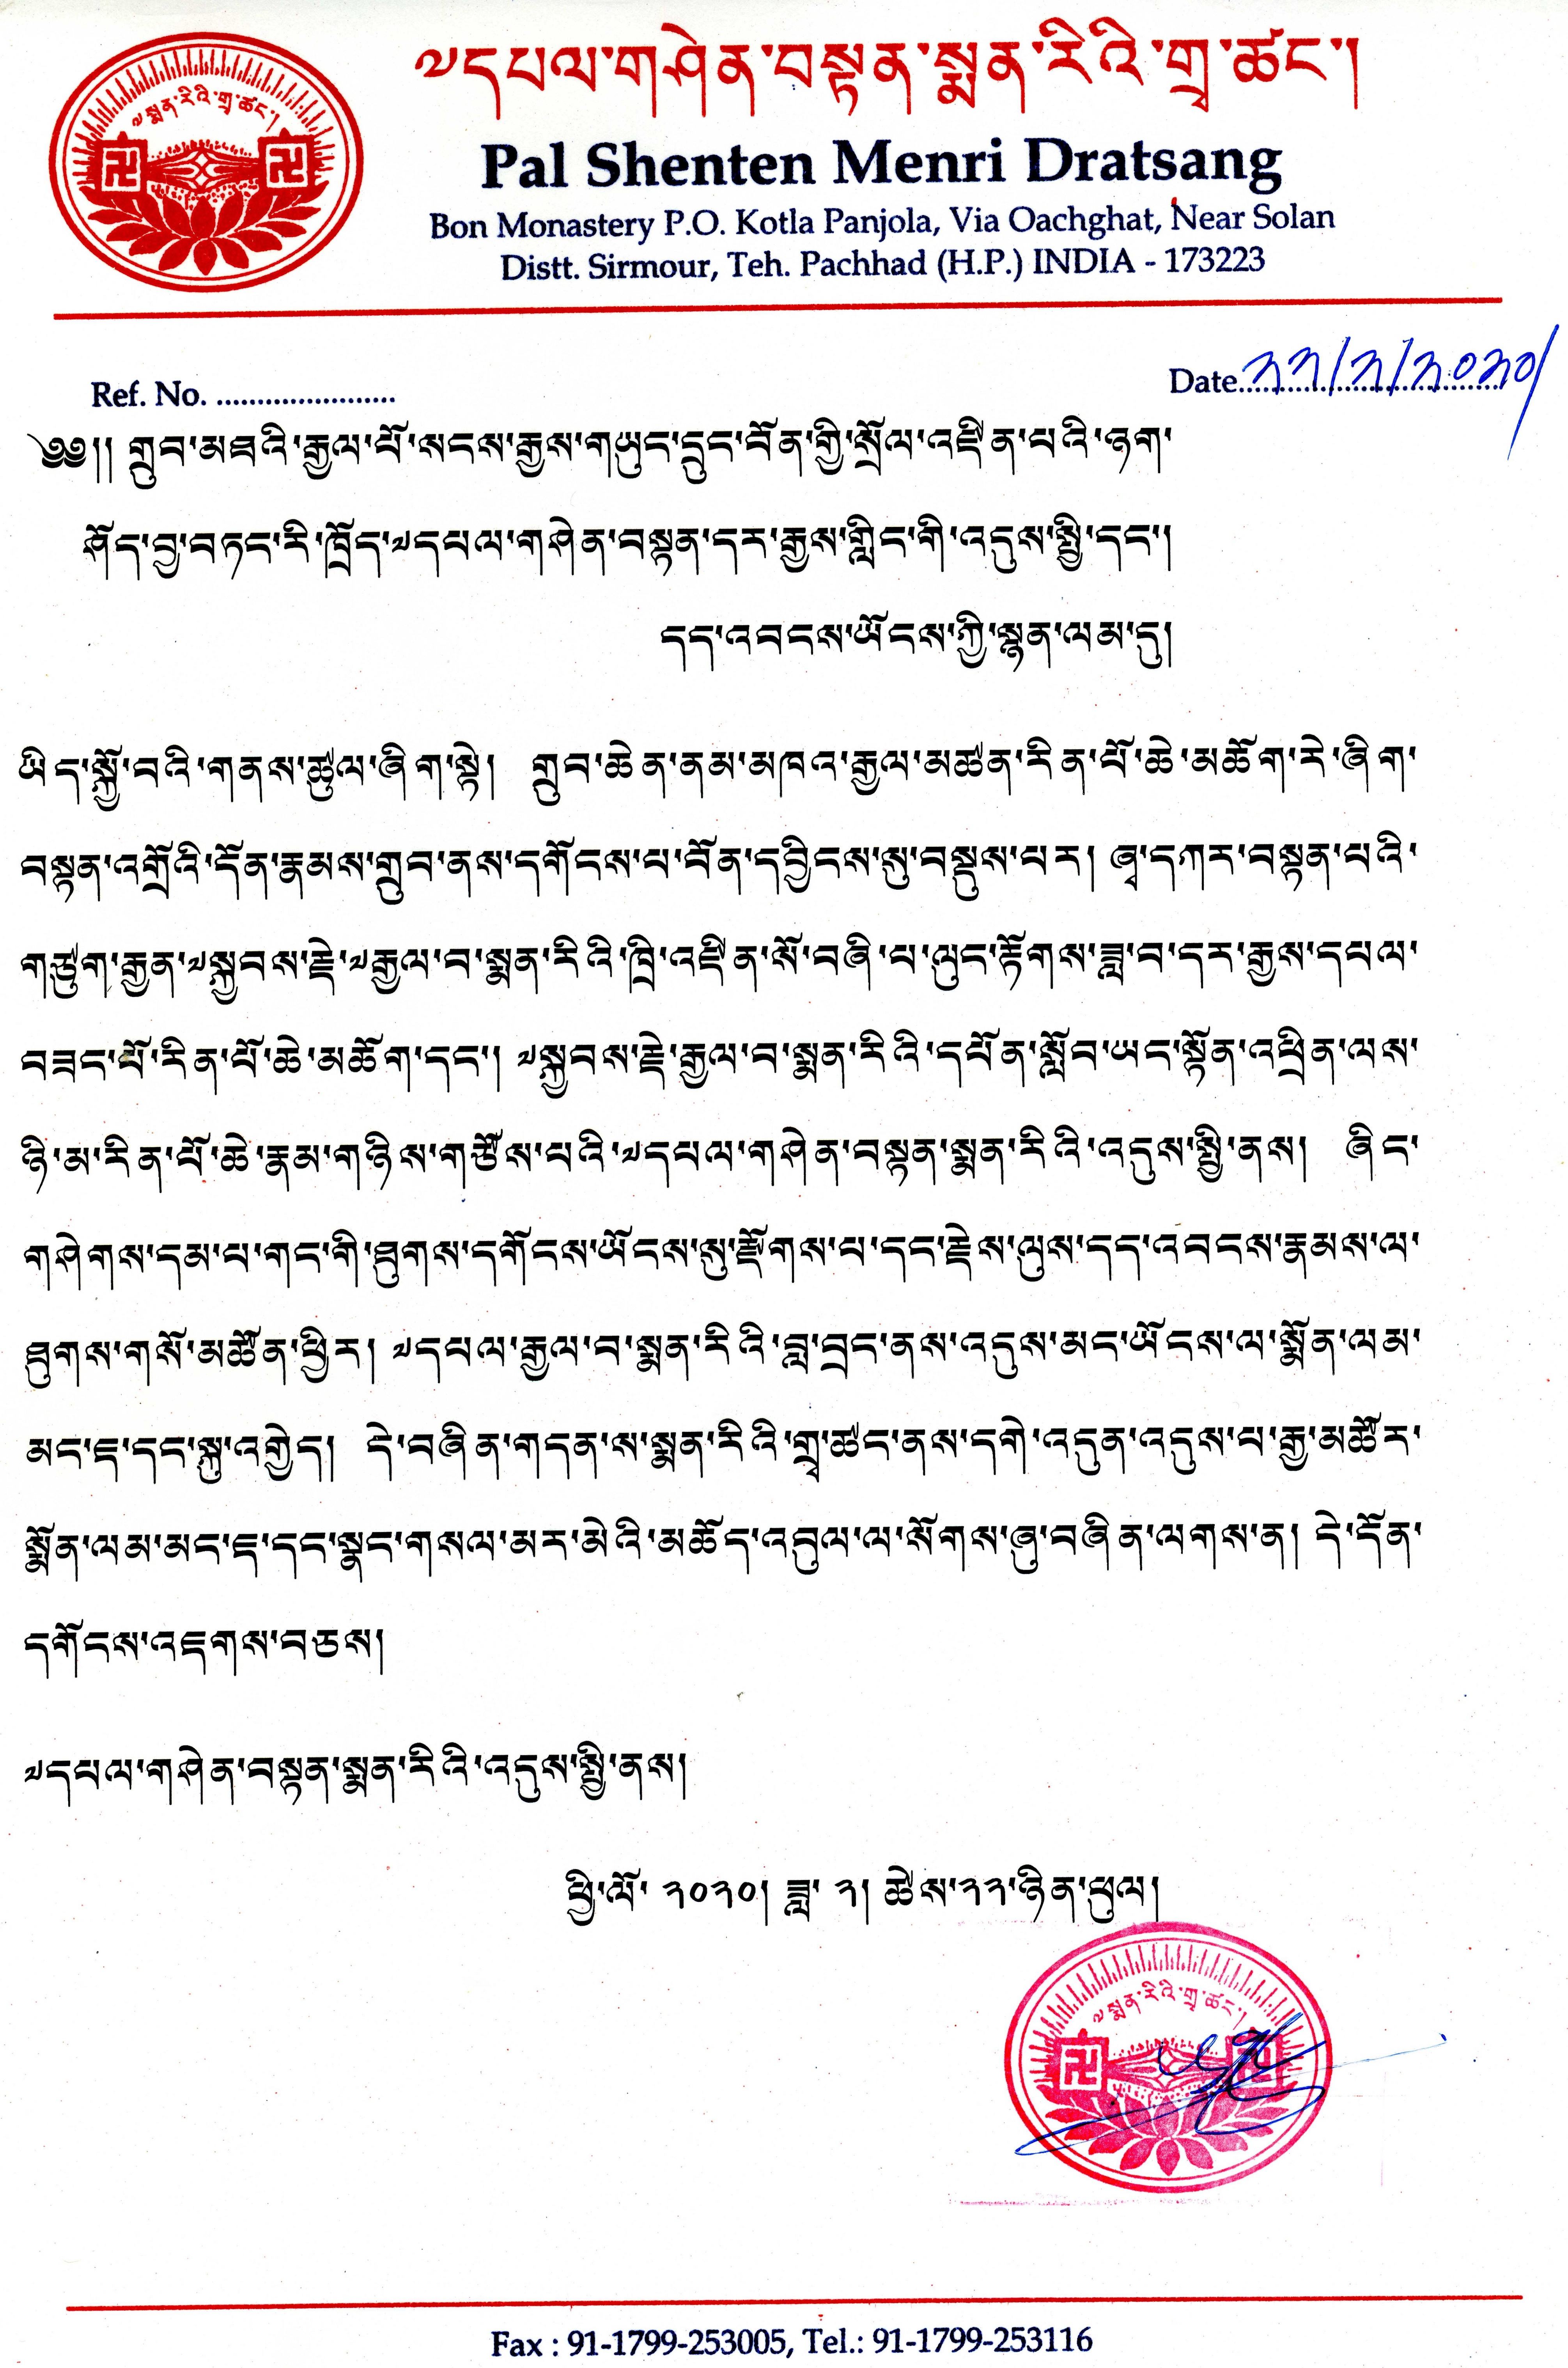 ༧སྨན་རིའི་གྲྭ་ཚང་།
༧དཔལ་གཤེན་བསྟན་སྨན་རིའི་གྲྭ་ཚང་།
Pal Shenten Menri Dratsang
Bon Monastery P.O. Kotla Panjola, Via Oachghat, Near Solan
Distt. Sirmour, Teh. Pachhad (H.P.) INDIA - 173223
Ref. No. ......................
Date..༢༢/༢/༢༠༢༠/
༄༅།། གྲུབ་མཐའི་རྒྱལ་པོ་སངས་རྒྱས་གཡུང་དྲུང་བོན་གྱི་སྲོལ་འཛིན་པའི་ཉག་
ཤོད་བྱ་བཏང་རི་ཁྲོད་༧དཔལ་གཤེན་བསྟན་དར་རྒྱས་གླིང་གི་འདུས་སྤྱི་དང་།
དད་འབངས་ཡོངས་ཀྱི་སྙན་ལམ་དུ།
ཡིད་སྐྱོ་བའི་གནས་ཚུལ་ཞིག་སྟེ། གྲུབ་ཆེན་ནམ་མཁའ་རྒྱལ་མཚན་རིན་པོ་ཆེ་མཆོག་རེ་ཞིག་
བསྟན་འགྲོའི་དོན་རྣམས་གྲུབ་ནས་དགོངས་པ་བོན་དབྱིངས་སུ་བསྡུས་པར། ཞྭ་དཀར་བསྟན་པའི་
གཙུག་རྒྱན་༧སྐྱབས་རྗེ་༧རྒྱལ་བ་སྨན་རིའི་ཁྲི་འཛིན་སོ་བཞི་པ་ལུང་རྟོགས་ཟླ་བ་དར་རྒྱས་དཔལ་
བཟང་པོ་རིན་པོ་ཆེ་མཆོག་དང་། ༧སྐྱབས་རྗེ་རྒྱལ་བ་སྨན་རིའི་དཔོན་སློབ་ཡང་སྟོན་འཕྲིན་ལས་
ཉི་མ་རིན་པོ་ཆེ་རྣམ་གཉིས་གཙོས་པའི་༧དཔལ་གཤེན་བསྟན་སྨན་རིའི་འདུས་སྤྱི་ནས། ཞིང་
གཤེགས་དམ་པ་གང་གི་ཐུགས་དགོངས་ཡོངས་སུ་རྫོགས་པ་དང་རྗེས་ལུས་དད་འབངས་རྣམས་ལ་
ཐུགས་གསོ་མཚོན་ཕྱིར། ༧དཔལ་རྒྱལ་བ་སྨན་རིའི་བླ་བྲང་ནས་འདུས་མང་ཡོངས་ལ་སྨོན་ལམ་
མང་ཇ་དང་སྐུ་འགྱེད། དེ་བཞིན་གདན་ས་སྨན་རིའི་གྲྭ་ཚང་ནས་དགེ་འདུན་འདུས་པ་རྒྱ་མཚོར་
སྨོན་ལམ་མང་ཇ་དང་སྣང་གསལ་མར་མེའི་མཆོད་འབུལ་ལ་སོགས་ཞུ་བཞིན་ལགས་ན། དེ་དོན་
དགོངས་འཇགས་བཅས།
༧དཔལ་གཤེན་བསྟན་སྨན་རིའི་འདུས་སྤྱི་ནས།
ཕྱི་ལོ་ ༢༠༢༠། ཟླ་ ༢། ཚེས་༢༢་ཉིན་ཕུལ།
༧སྨན་རིའི་གྲྭ་ཚང་།
Fax : 91-1799-253005, Tel.: 91-1799-253116